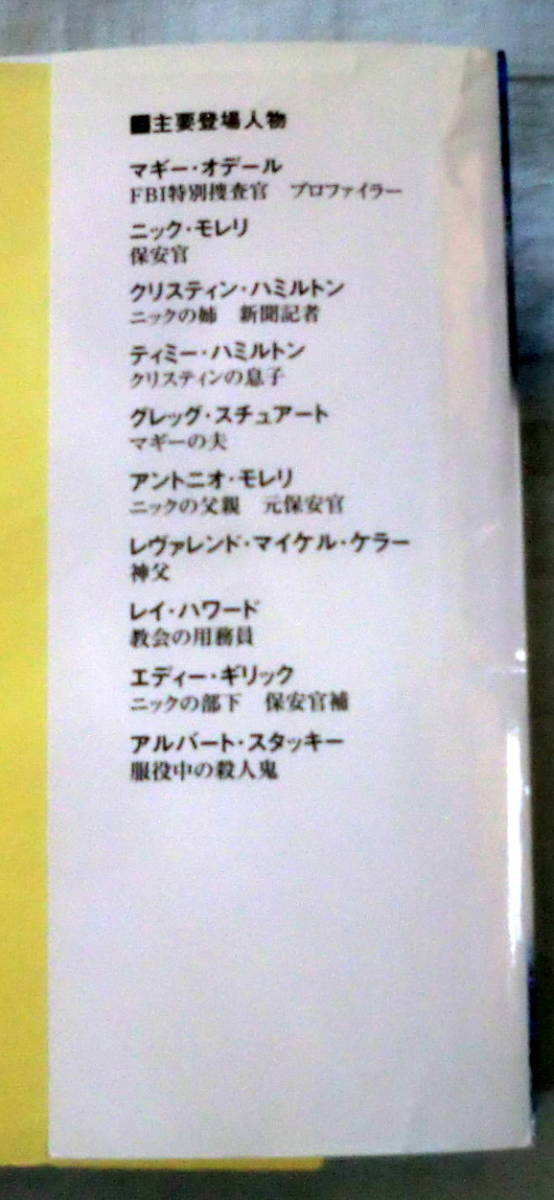 ■主要登場人物
マギー・オデール
FBI特別捜査官　プロファイラー
ニック・モレリ
保安官
クリスティン・ハミルトン
ニックの姉　新聞記者
ティミー・ハミルトン
クリスティンの息子
グレッグ・スチュアート
マギーの夫
アントニオ・モレリ
ニックの父親　元保安官
レヴァレンド・マイケル・ケラー
神父
レイ・ハワード
教会の用務員
エディー・ギリック
ニックの部下　保安官補
アルバート・スタッキー
服役中の殺人鬼